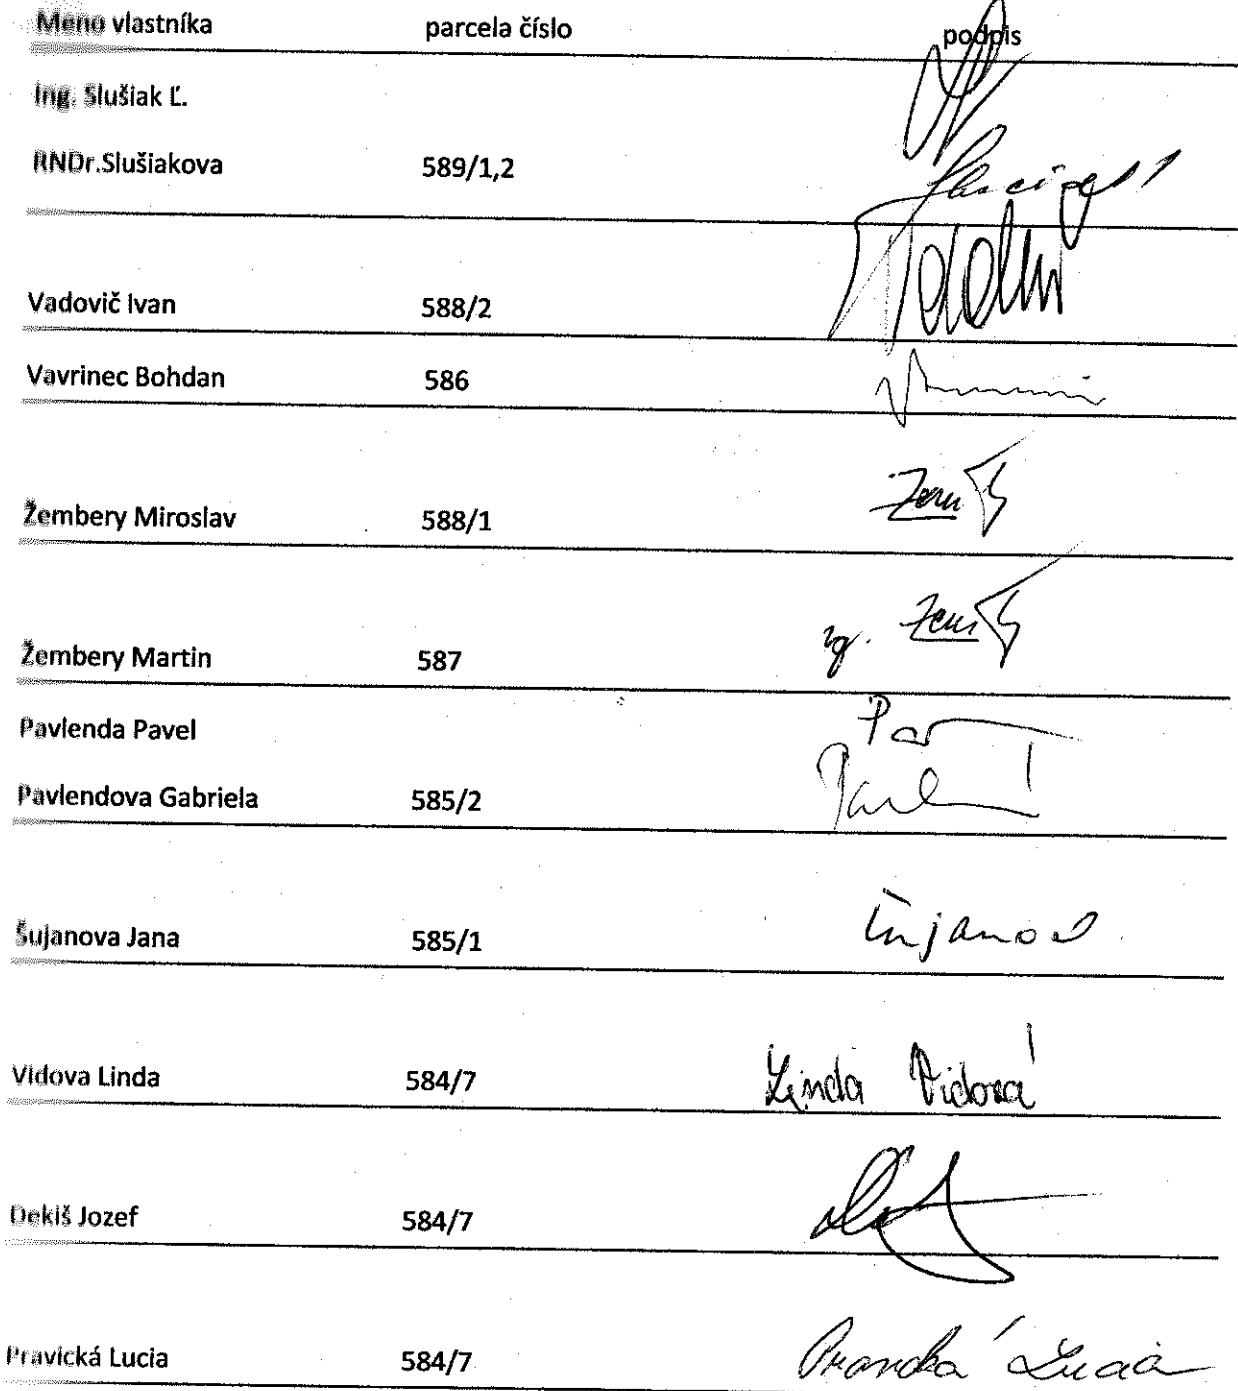 Meno vlastníka parcela číslo podpis
Ing. Slušiak Ľ.
RNDr.Slušiakova 589/1,2
Vadovič Ivan 588/2
Vavrinec Bohdan 586
Žembery Miroslav 588/1
Žembery Martin 587
Pavlenda Pavel
Pavlendova Gabriela 585/2
Šujanova Jana 585/1
Vidova Linda 584/7 Linda Vidová
Dekiš Jozef 584/7
Pravická Lucia 584/7